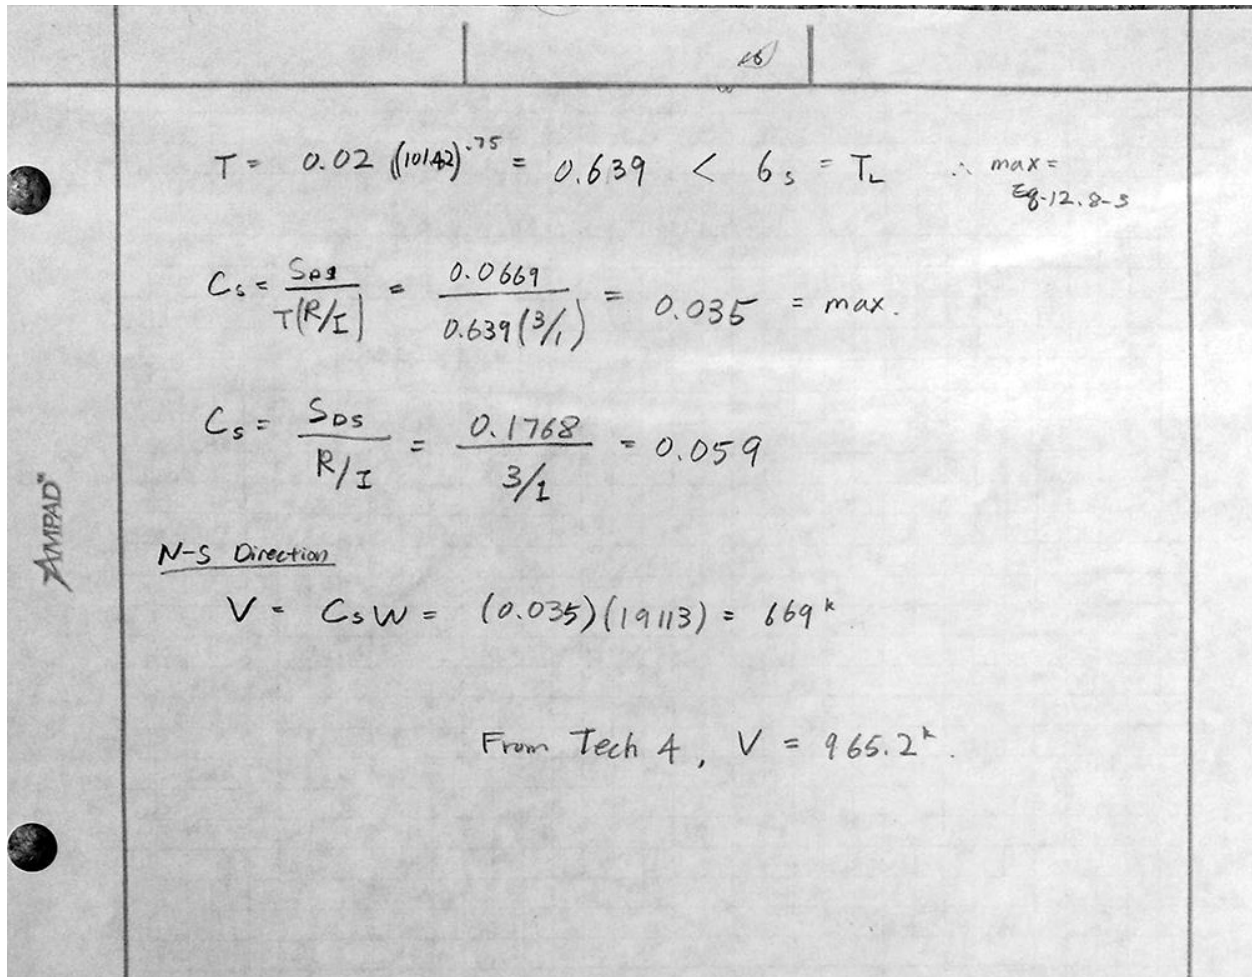 T = 0.02 (101.42)^.75 = 0.639 < 6s = T_L ∴ max =
Eq-12.8-3
C_s = S_D1 / T(R/I) = 0.0669 / 0.639(3/1) = 0.035 = max.
C_s = S_DS / R/I = 0.1768 / 3/1 = 0.059
N-S Direction
V = C_s W = (0.035)(19113) = 669^k
From Tech 4, V = 965.2^k.
AMPAD